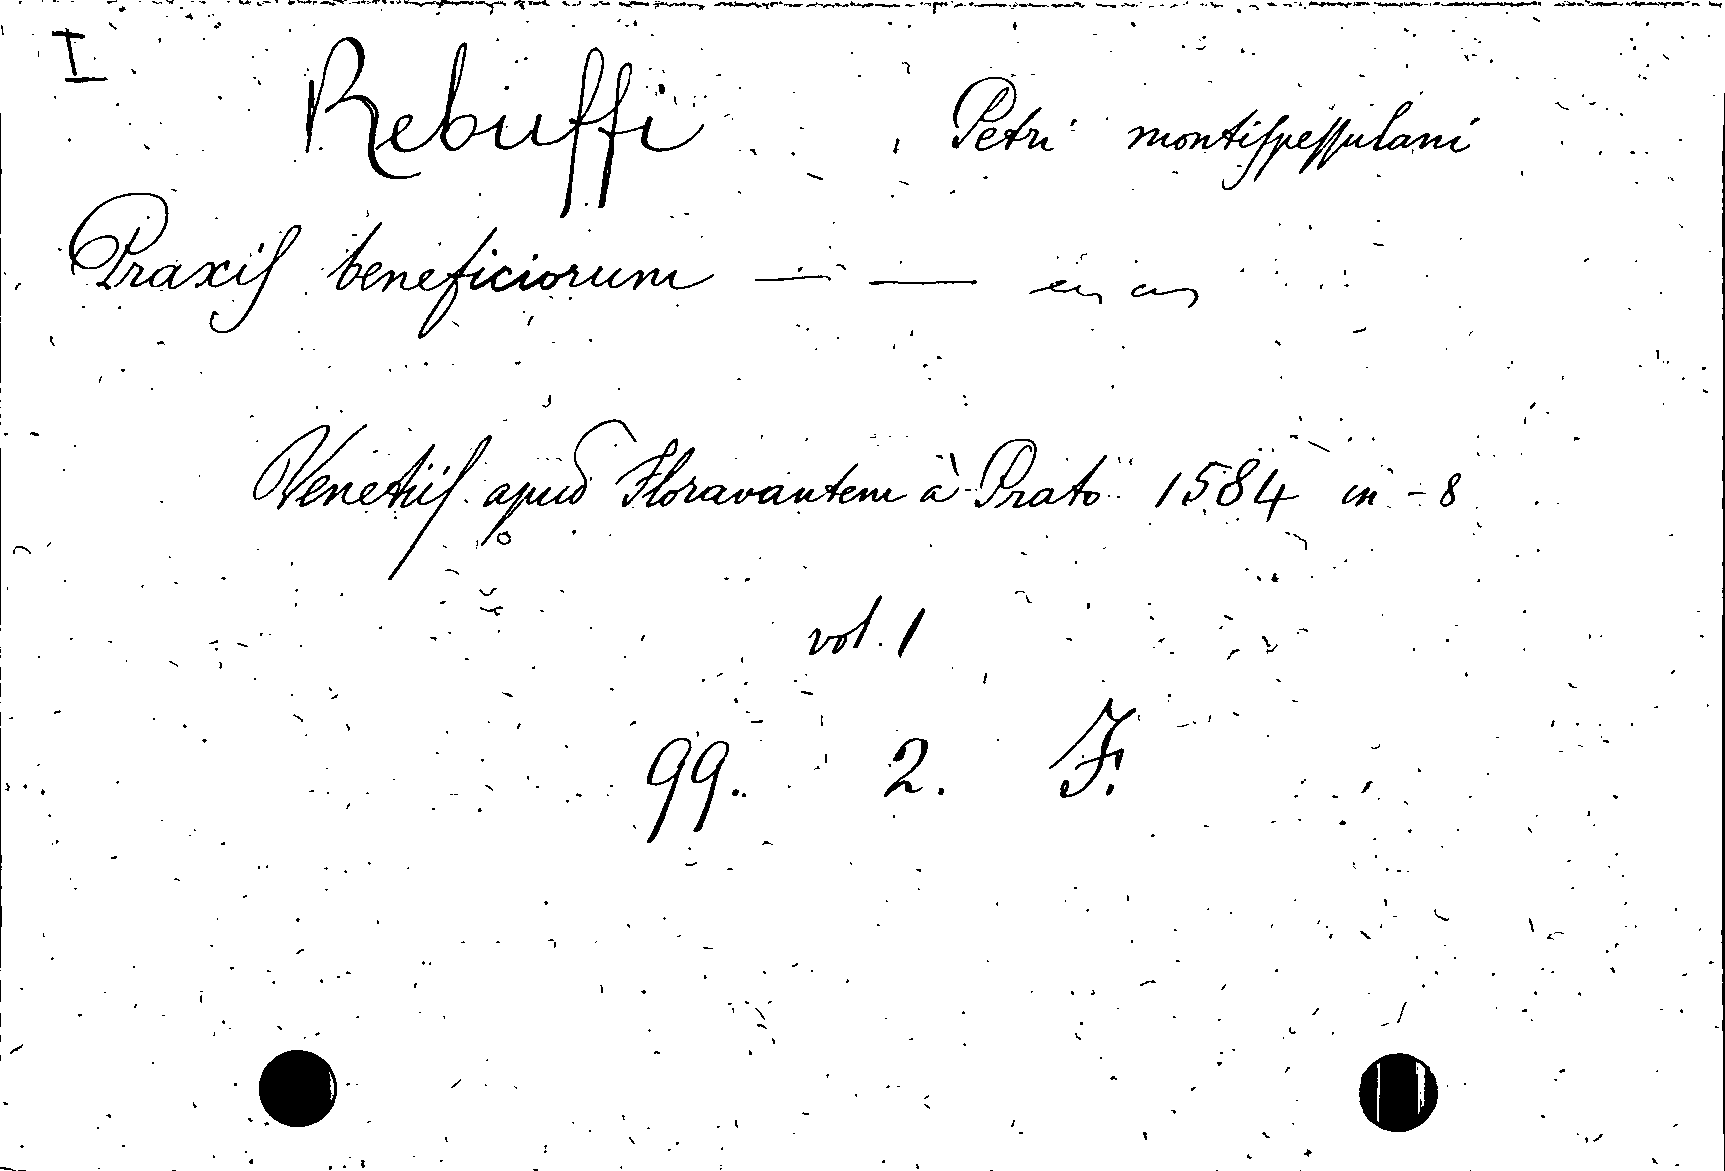 I
Rebuffi , Petri montiſpeſſulani
Praxiſ beneficiorum — —
Venetiiſ apud Floravantem à Prato 1584 in-8°
vol. 1
99. 2. F.